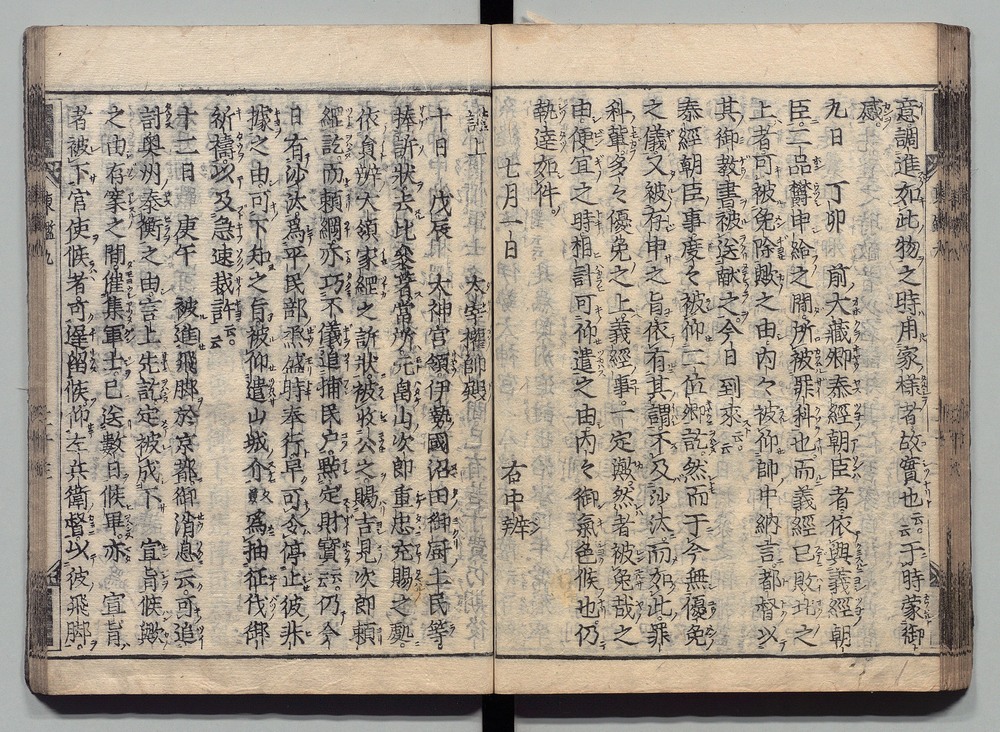 意調進如此物之時用家様者故實也云云于時蒙御
感
九日　丁卯　前大藏卿泰經朝臣者依與義經朝
臣二品欝申給之間所被罪科也而義經已敗北之
上者可被免除歟之由内々被仰帥中納言都督以
其御教書被送獻之今日到來云云
泰經朝臣事度々被仰二位卿訖然而于今無優免
之儀又被存申之旨依有其謂不及沙汰而如此罪
科輩多々優免之上義經事一定與然者被免哉之
由便宜之時相計可仰遣之由内々御氣色候也仍
執達如件
七月一日　右中辨
謹上　太宰權帥殿
十日　戊辰　太神宮領伊勢國沼田御厨土民等
捧訴状去比參著當所元畠山次郎重忠充賜之處
依員辨大領家經之訴状被收公之賜吉見次郎頼
經訖而頼綱亦巧不儀追捕民戸點定財寳云云仍今
日有沙汰爲平民部烝盛時奉行早可令停止彼非
據之由可下知之旨被仰遣山城介爲抽征伐御
祈禱以及急速裁許云云
十二日　庚午　被進飛脚於京都御消息云可追
討奥州泰衡之由言上先訖定被成下　宣旨候歟
之由存案之間催集軍士已送數日候畢亦　宣旨
者被下官使候者可遲留候仰左兵衛督以彼飛脚
東鑑九